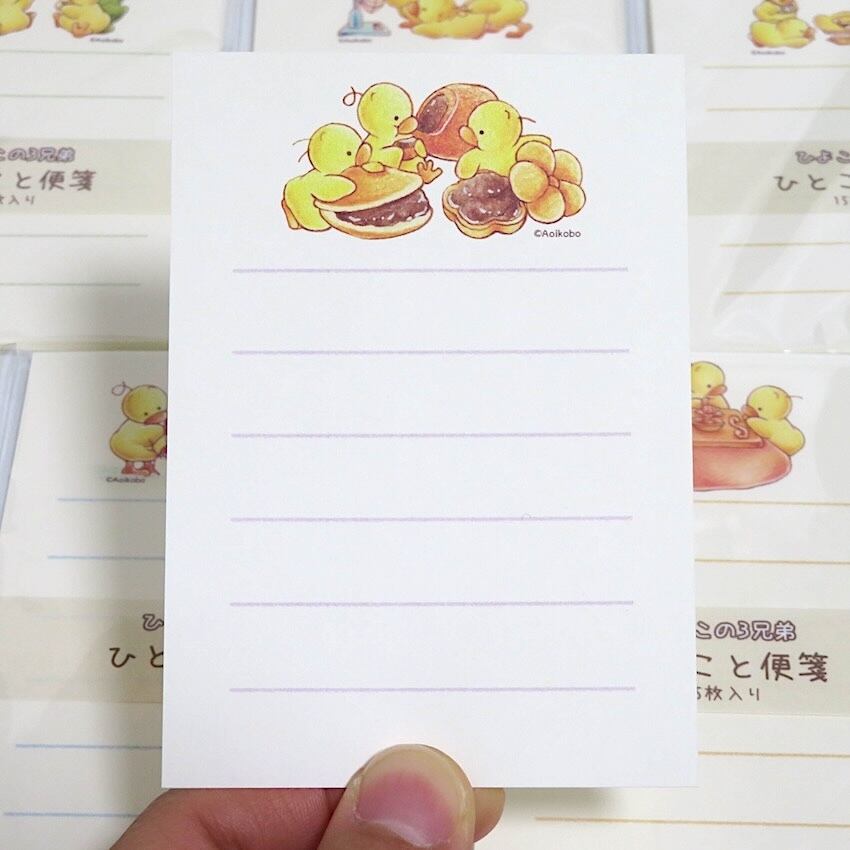 ©Aoikobo
この3兄弟
こと便箋
枚入り
ひよこ
ひとこ
15
©Aoikobo
ひ
ひと
この3兄弟
こと便箋
5枚入り